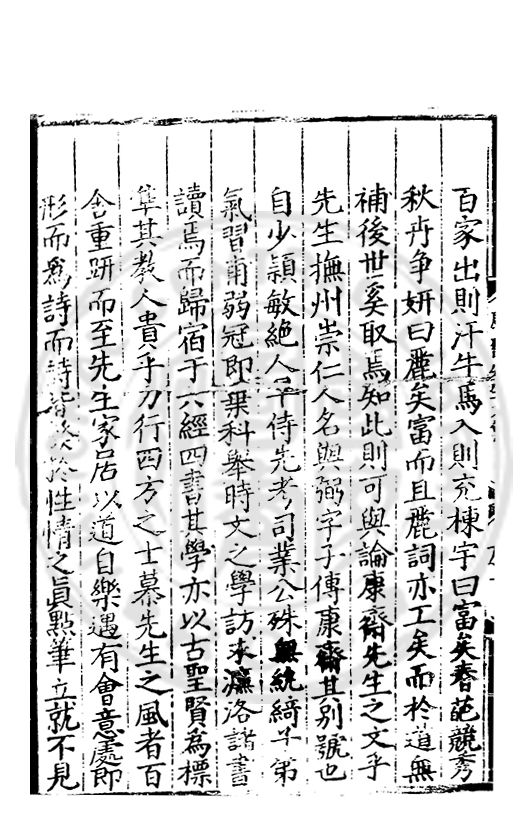 百家出則汗牛馬入則充棟宇曰富矣春葩競秀
秋卉争妍曰麗矣富而且麗詞亦工矣而於道無
補後世奚取焉知此則可與論康齋先生之文乎
先生撫州崇仁人名與弼字子傳康齋其别號也
自少頴敏絶人早侍先考司業公殊無紈綺子弟
氣習甫弱冠即棄科舉時文之學訪求濂洛諸書
讀焉而歸宿于六經四書其學亦以古聖賢為標
凖其教人貴乎力行四方之士慕先生之風者百
舍重趼而至先生家居以道自樂遇有會意處即
形而為詩而詩皆發於性情之眞點筆立就不見